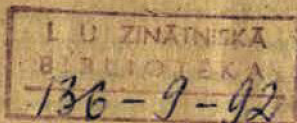 L U ZINĀTNISKĀ
BIBLIOTEKA
136-9-92